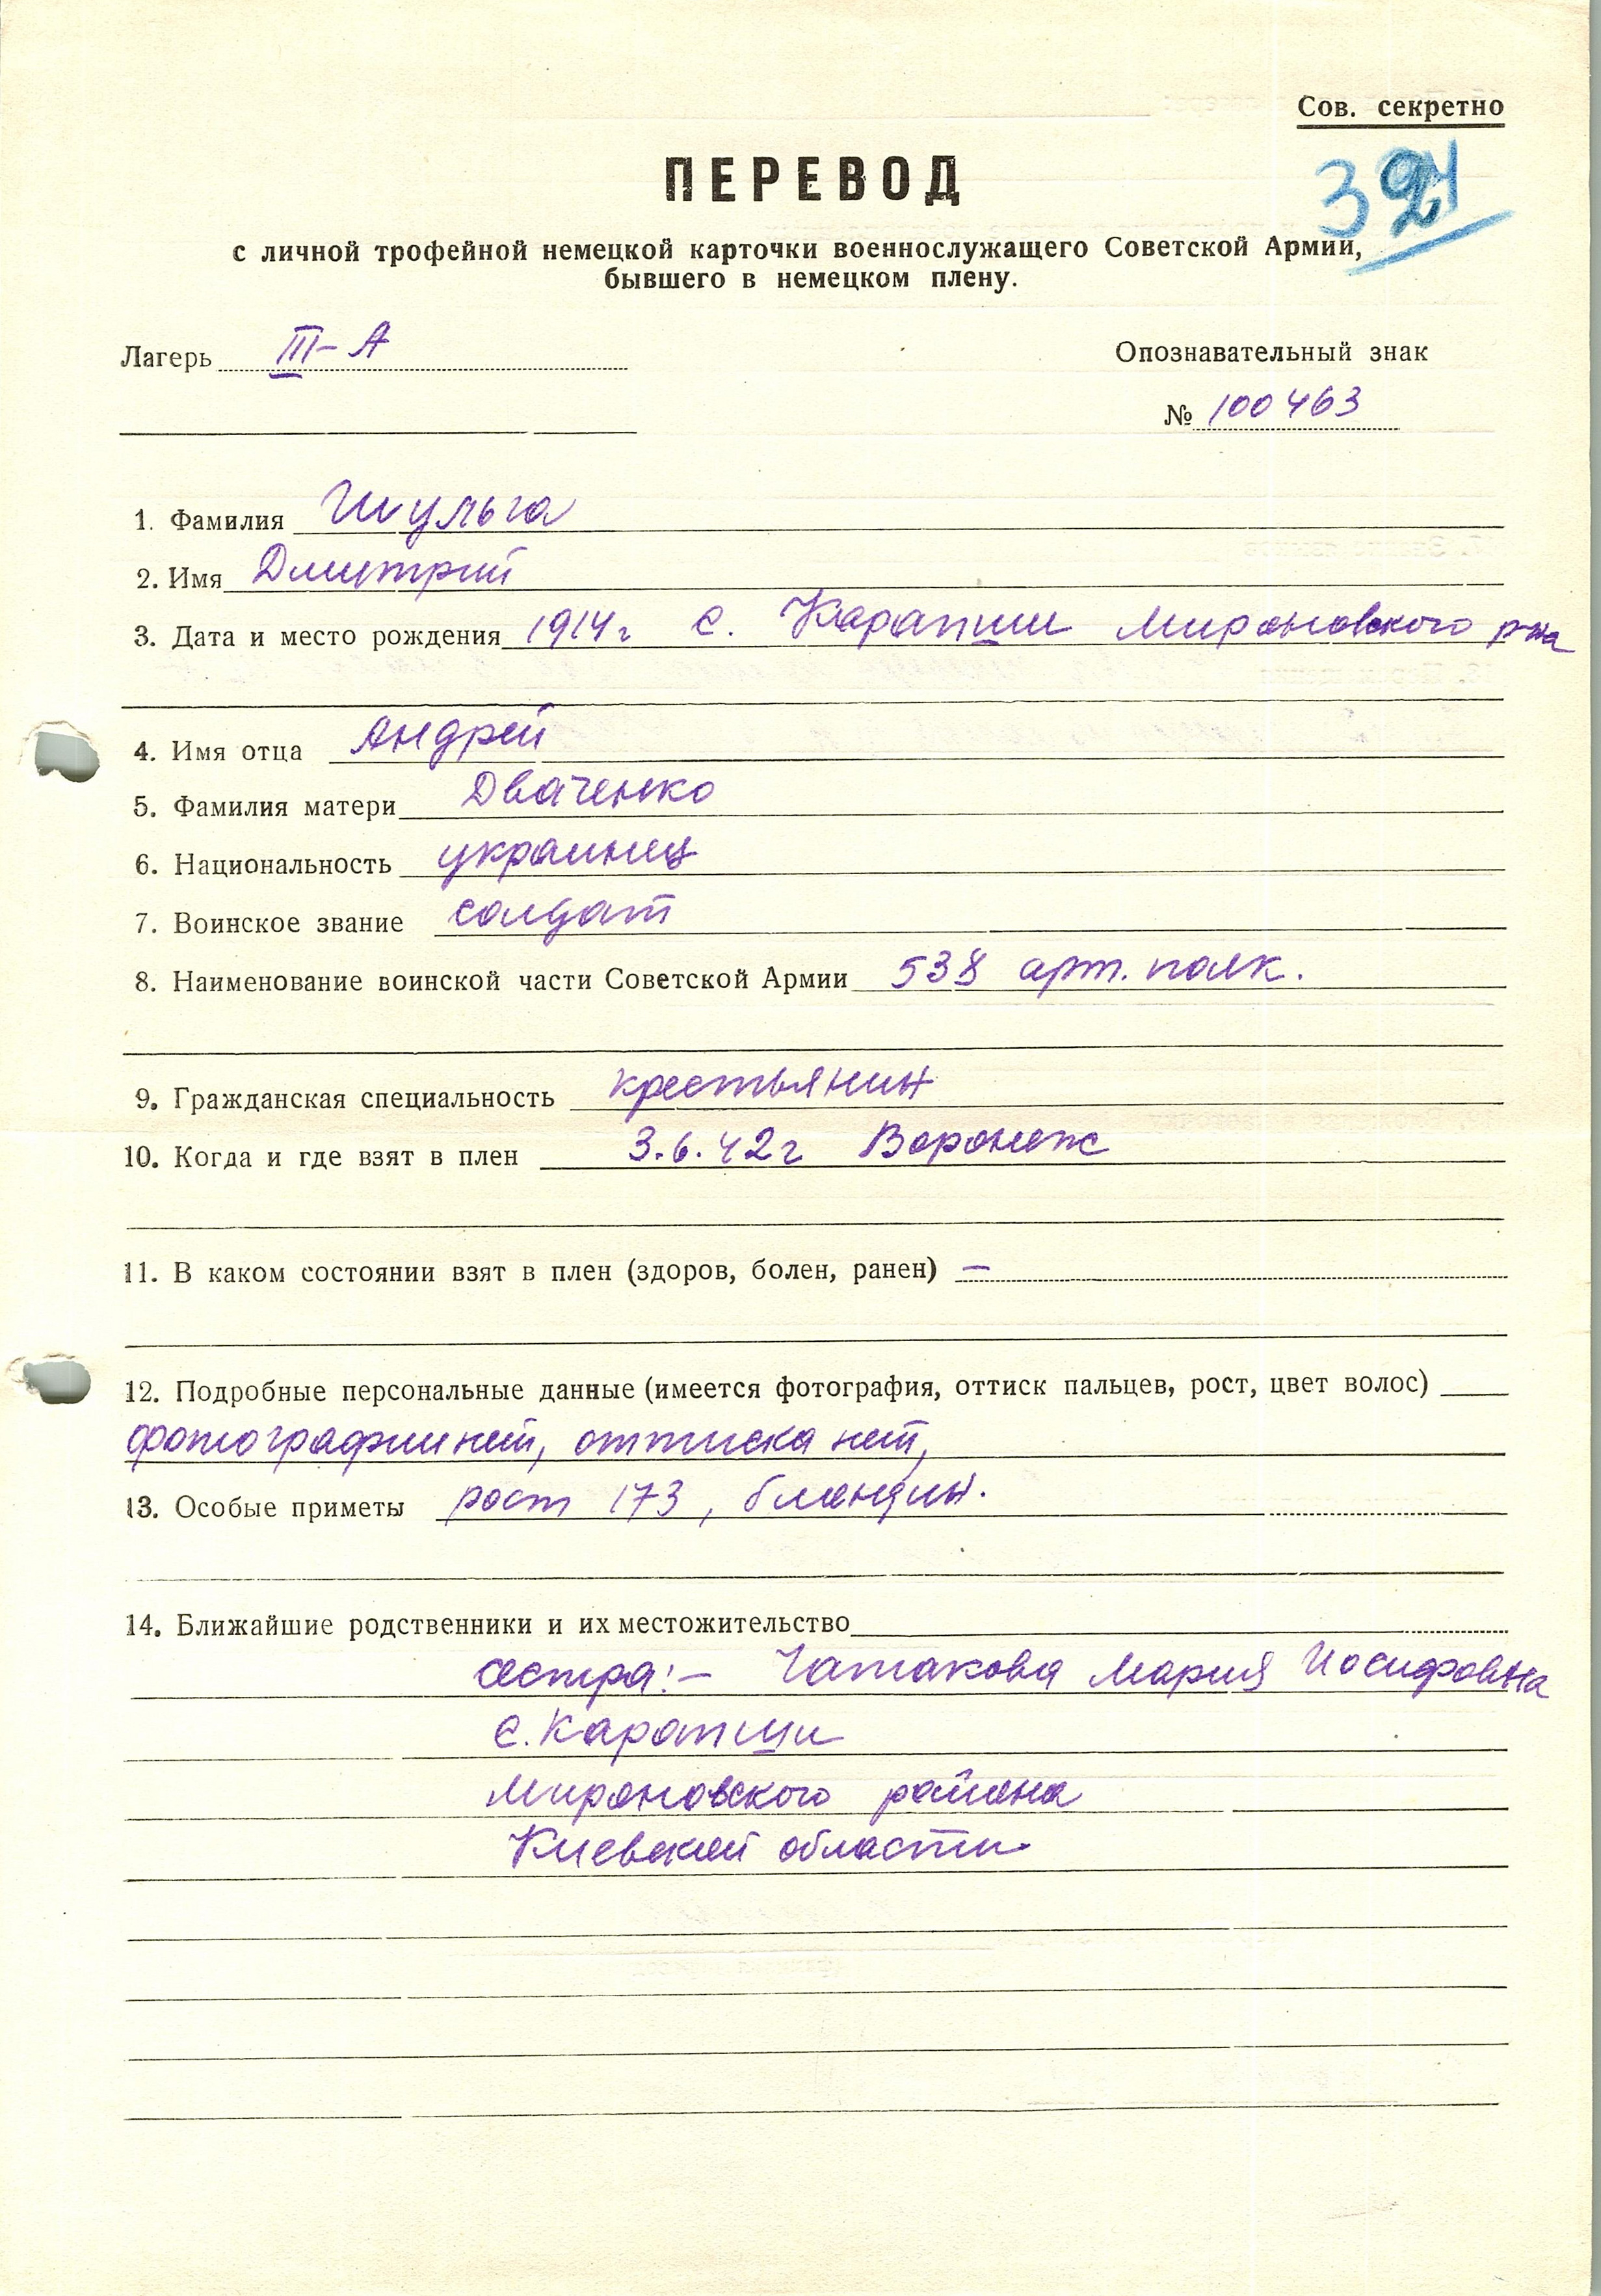 Сов. секретно
ПЕРЕВОД
с личной трофейной немецкой карточки военнослужащего Советской Армии,
бывшего в немецком плену.
Лагерь III-А
Опознавательный знак
№ 100463
1. Фамилия Шульга
2. Имя Дмитрий
3. Дата и место рождения 1914г с. Карапиши Мироновского р-на
4. Имя отца Андрей
5. Фамилия матери Дваченко
6. Национальность украинец
7. Воинское звание солдат
8. Наименование воинской части Советской Армии 538 арт. полк.
9. Гражданская специальность крестьянин
10. Когда и где взят в плен 3.6.42г Воронеж
11. В каком состоянии взят в плен (здоров, болен, ранен) —
12. Подробные персональные данные (имеется фотография, оттиск пальцев, рост, цвет волос)
фотографии нет, оттиска нет,
13. Особые приметы рост 173, блондин.
14. Ближайшие родственники и их местожительство
сестра:- Мария Иосифовна
с. Карапиши
Мироновского района
Киевской области